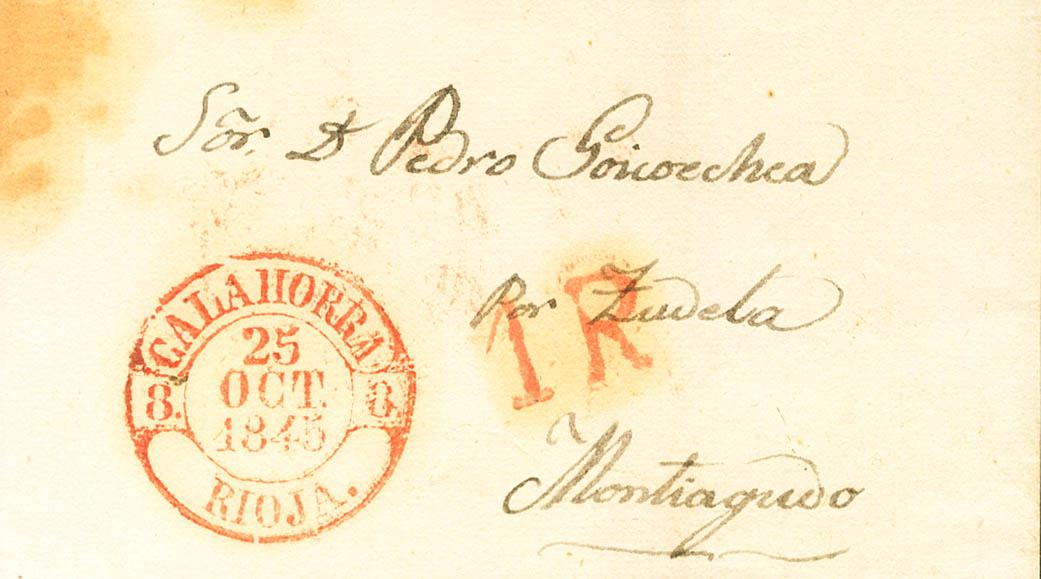 Sõr. Dn Pedro Goicoechea
Por Tudela
1R
Montiagudo
CALAHORRA
25
OCT.
1845
8. 8.
RIOJA.